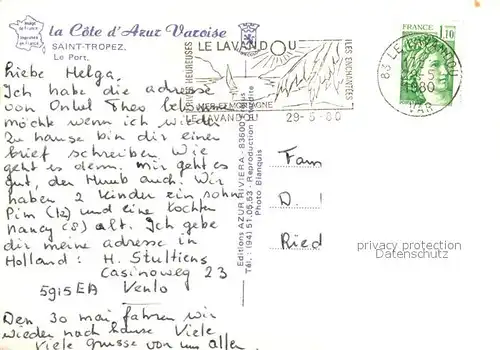 Image de France
Imprimée en France
la Côte d'Azur Varoise
SAINT-TROPEZ.
Le Port.
Liebe Helga.
Ich habe die adresse
von Onkel Theo
möchte wenn ich wieder
zu hause bin dir einer
brief schreiben. Wie
geht es denn. mir geht es
gut, den Huub auch. Wir
haben 2 kinder ein sohne
Pim (12) und eine tochter
nancy (8) alt. Ich gebe
dir meine adresse in
Holland: H. Stultiens
Casinoweg 23
5915EA Venlo
Den 30 mai fahren wir
wieder nach hause Viele
Viele grusse von uns allen
LE LAVANDOU
HEUREUSES
MER ET MONTAGNE
ILES ENCHANTÉES
LE LAVANDOU
29-5-80
Editions AZUR RIVIERA - 83600
Tél: (94) 51.05.53 - Reproduction
Photo Blanquis
FRANCE
1,10
83 LE LAVANDOU
1980
VAR
Fam
D. !
Ried
privacy protection
ansichtskarten-lexikon